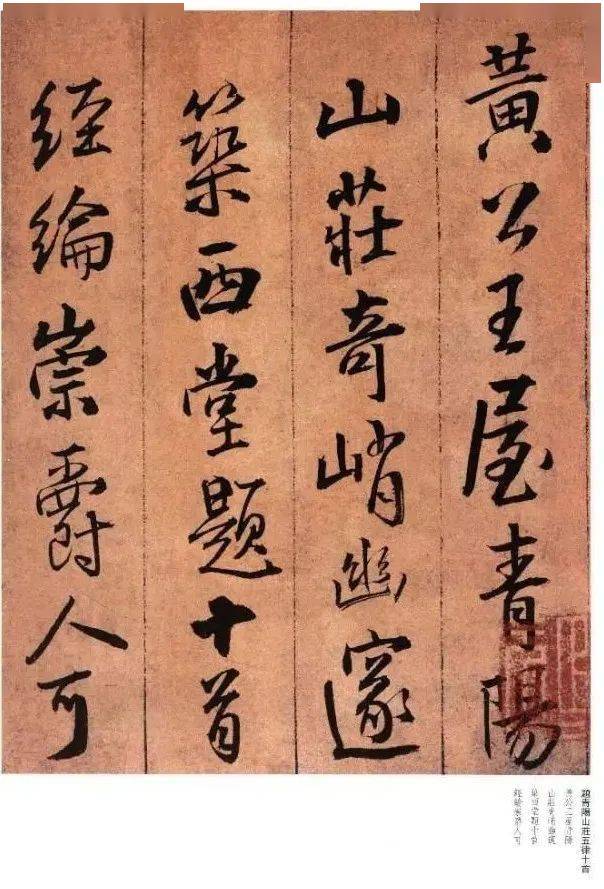 黃公王屋青陽
山莊奇峭幽邃
築西堂題十首
經綸崇爵人可
題青陽山莊五律十首
黃公王屋青陽
山莊奇峭幽邃
築西堂題十首
經綸崇爵人可